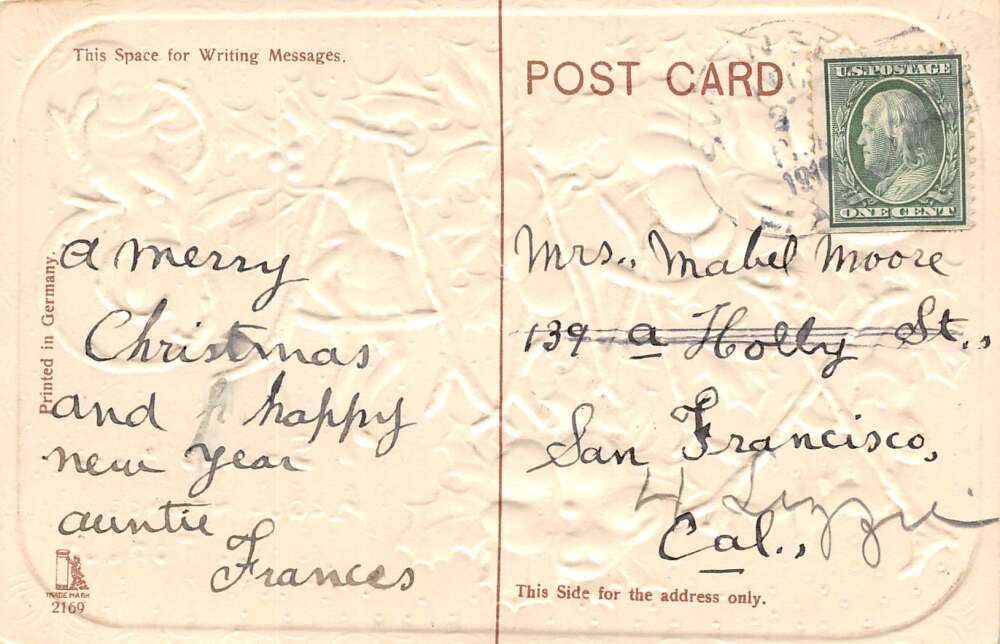 This Space for Writing Messages.
a merry
Christmas
and happy
new year
auntie
Frances
Printed in Germany.
TRADE MARK
2169
POST CARD
U.S. POSTAGE
ONE CENT
Mrs., Mabel Moore
139 a Holly St.,
San Francisco,
4 Lizzie
Cal.,
This Side for the address only.